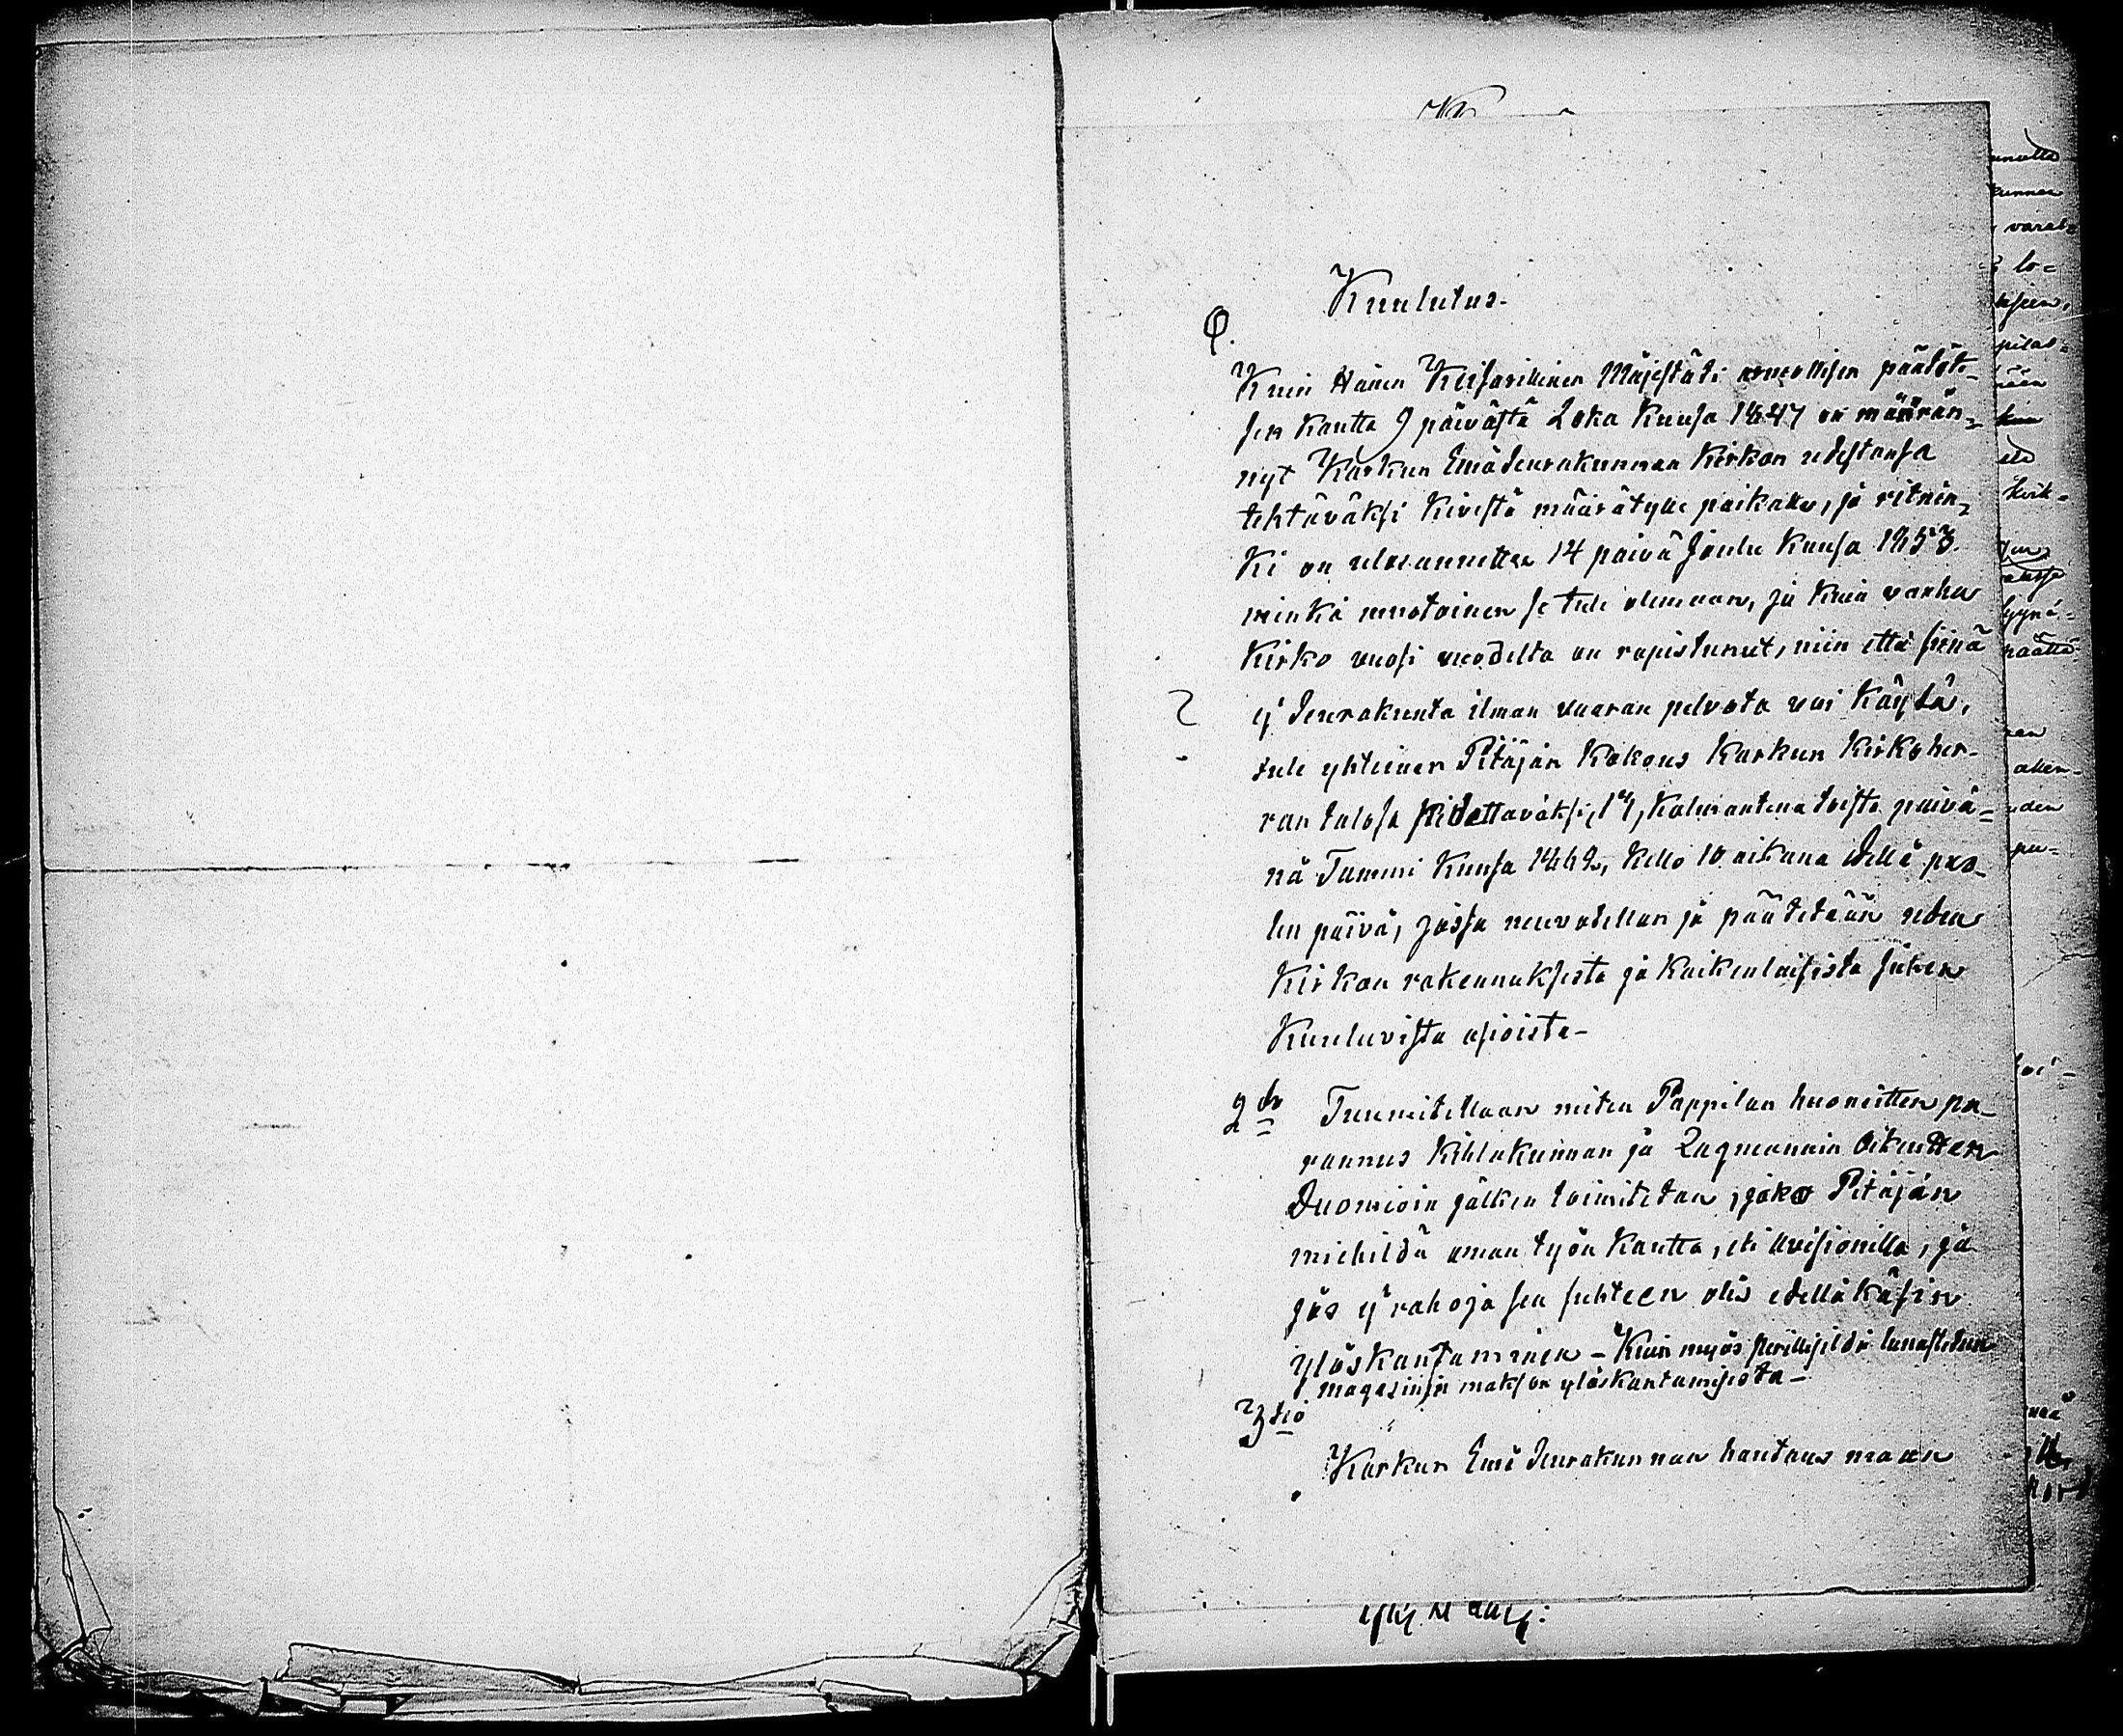 Kuulutus.
Kuin Hänen Keisarillinen Majestäti armollisen päätök-
sen kautta 9 päivästä Loka Kuusa 1847 on määrän-
nyt Karkun Emäseurakunnan Kirkon udestansa
tehtäväksi Kivestä määrätylle paikalle, ja ritnin-
Ki on ulosannettu 14 päivä Joulu Kuusa 1853.
minkä muotoinen se tule olemaan, ja kuin vanha
Kirko vuosi vuodelta on rapistunut, niin että sienä
ej Seurakunta ilman vaaran pelvota voi Käytä,
tule yhteinen Pitäjän Kokous Karkun Kirkoher-
ran talosa pidettäväksi, 13, Kolmantena toista päivä-
nä Tammi Kuusa 1862, Kello 10 aikana Edellä puo-
len päivä, jossa neuvotellan ja päätetään uden
Kirkon rakennuksesta ja Kaikenlaisista siihen
Kuuluvista asioista-
2do Tuumitellaan miten Pappilan huoneitten pa-
rannus Kihlakunnan ja Lagmannin Oikeutten
Duomioin jälken toimitetan, joko Pitäjän
miehildä oman työn Kautta, eli auksionilla, ja
jos ej rahoja sen suhteen olis edelläkäsin
ylöskantaminen - Kuin myös
magasinin makson ylöskantamisesta -
3tiö
Karkun Emä Seurakunnan hautaus maan
unatta
kunnan
varat-
lo-
pitas-
nään
kirk-
päättä
aken-
uden
pu-